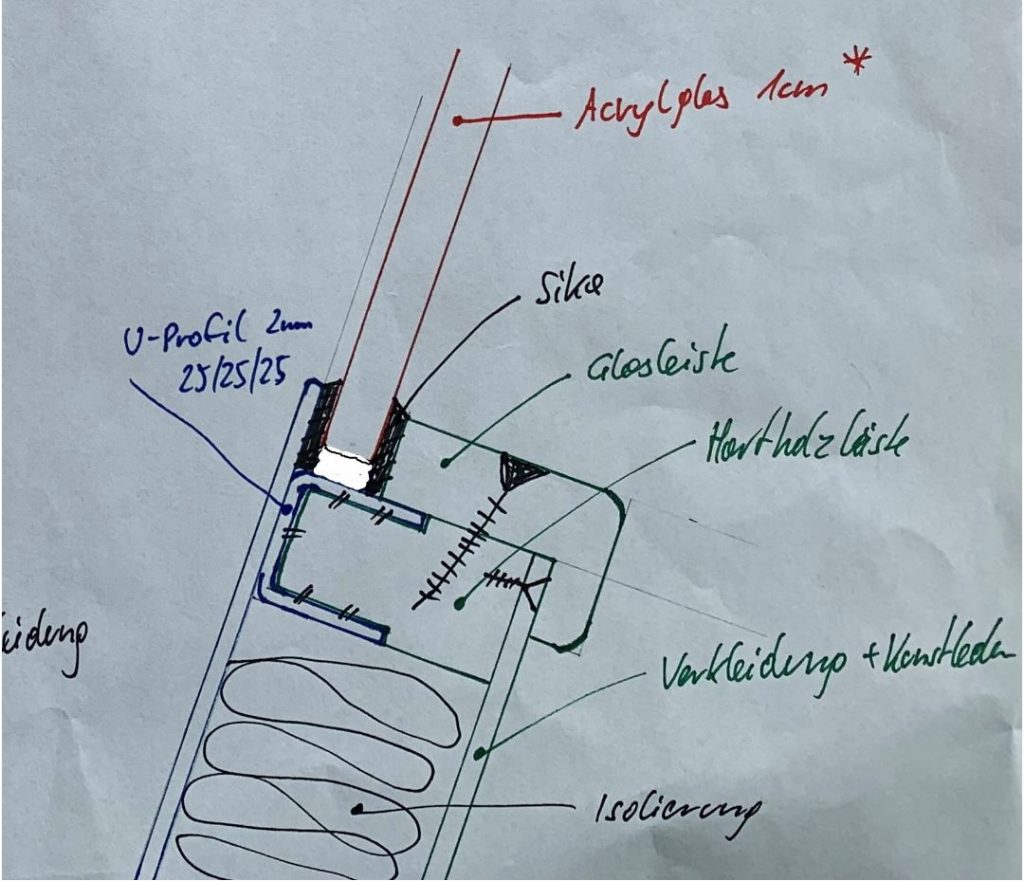 Acrylglas 1cm *
Sika
U-Profil 2mm
25/25/25
Glasleiste
Hartholzleiste
eidung
Verkleidung + Kunstleder
Isolierung